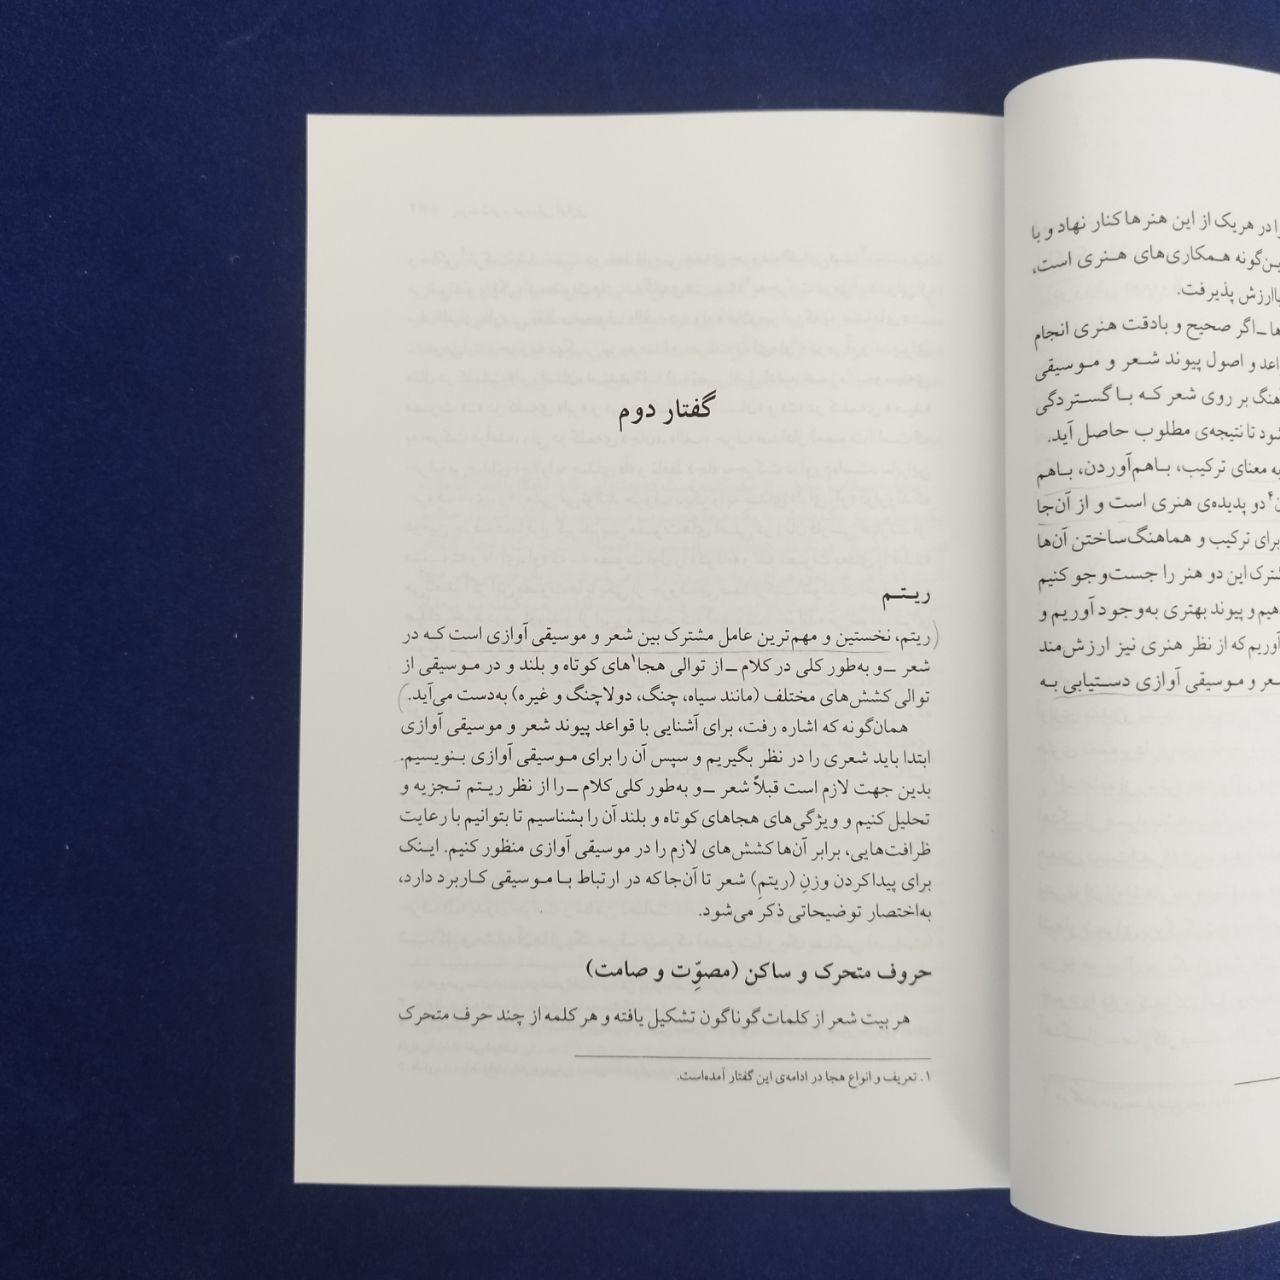 را در هریک از این هنرها کنار نهاد و با
این‌گونه همکاری‌های هنری است،
باارزش پذیرفت.
ها ــ اگر صحیح و بادقت هنری انجام
واعد و اصول پیوند شعر و موسیقی
آهنگ بر روی شعر که با گستردگی
شود تا نتیجه‌ی مطلوب حاصل آید.
به معنای ترکیب، باهم‌آوردن، باهم
۴ دو پدیده‌ی هنری است و از آن‌جا
برای ترکیب و هماهنگ‌ساختن آن‌ها
مشترک این دو هنر را جست‌وجو کنیم
دهیم و پیوند بهتری به‌وجود آوریم و
آوریم که از نظر هنری نیز ارزش‌مند
شعر و موسیقی آوازی دستیابی به
گفتار دوم
ریتم
ریتم، نخستین و مهم‌ترین عامل مشترک بین شعر و موسیقی آوازی است که در
شعر ــ و به‌طور کلی در کلام ــ از توالی هجا۱های کوتاه و بلند و در موسیقی از
توالی کشش‌های مختلف (مانند سیاه، چنگ، دولاچنگ و غیره) به‌دست می‌آید.
همان‌گونه که اشاره رفت، برای آشنایی با قواعد پیوند شعر و موسیقی آوازی
ابتدا باید شعری را در نظر بگیریم و سپس آن را برای موسیقی آوازی بنویسیم.
بدین جهت لازم است قبلاً شعر ــ و به‌طور کلی کلام ــ را از نظر ریتم تجزیه و
تحلیل کنیم و ویژگی‌های هجاهای کوتاه و بلند آن را بشناسیم تا بتوانیم با رعایت
ظرافت‌هایی، برابر آن‌ها کشش‌های لازم را در موسیقی آوازی منظور کنیم. اینک
برای پیداکردن وزنِ (ریتمِ) شعر تا آن‌جا که در ارتباط با موسیقی کاربرد دارد،
به‌اختصار توضیحاتی ذکر می‌شود.
حروف متحرک و ساکن (مصوّت و صامت)
هر بیت شعر از کلمات گوناگون تشکیل یافته و هر کلمه از چند حرف متحرک
۱. تعریف و انواع هجا در ادامه‌ی این گفتار آمده‌است.